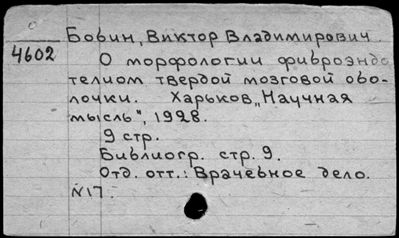 Бовин, Виктор Владимирович
4602
О морфологии фиброэндо
телиом твердой мозговой обо-
лочки. Харьков „Научная
мысль“, 1928.
9 стр.
Библиогр. стр. 9.
Отд. отт.: Врачебное дело.
N17.